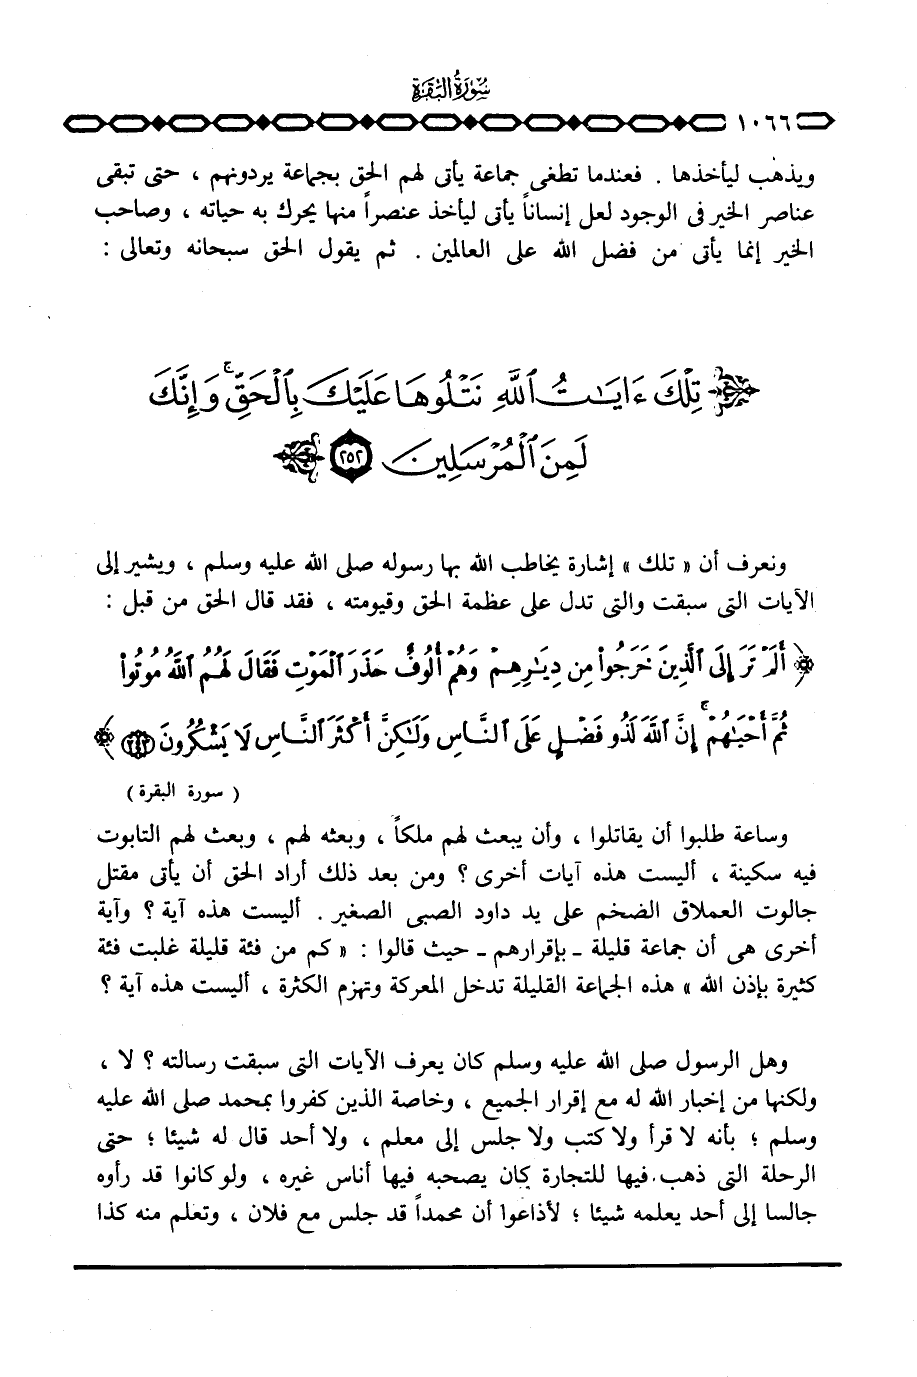 سُورَةُ البَقَرَةِ
١٠٦٦
ويذهب ليأخذها . فعندما تطغى جماعة يأتى لهم الحق بجماعة يردونهم ، حتى تبقى
عناصر الخير فى الوجود لعل إنساناً يأتى ليأخذ عنصراً منها يحرك به حياته ، وصاحب
الخير إنما يأتى من فضل الله على العالمين . ثم يقول الحق سبحانه وتعالى :
تِلْكَ ءَايَٰتُ ٱللَّهِ نَتْلُوهَا عَلَيْكَ بِٱلْحَقِّ ۚ وَإِنَّكَ
لَمِنَ ٱلْمُرْسَلِينَ ٢٥٢
ونعرف أن « تلك » إشارة يخاطب الله بها رسوله صلى الله عليه وسلم ، ويشير إلى
الآيات التى سبقت والتى تدل على عظمة الحق وقيومته ، فقد قال الحق من قبل :
﴿ أَلَمْ تَرَ إِلَى ٱلَّذِينَ خَرَجُوا۟ مِن دِيَٰرِهِمْ وَهُمْ أُلُوفٌ حَذَرَ ٱلْمَوْتِ فَقَالَ لَهُمُ ٱللَّهُ مُوتُوا۟
ثُمَّ أَحْيَٰهُمْ ۚ إِنَّ ٱللَّهَ لَذُو فَضْلٍ عَلَى ٱلنَّاسِ وَلَٰكِنَّ أَكْثَرَ ٱلنَّاسِ لَا يَشْكُرُونَ ٢٤٣ ﴾
( سورة البقرة )
وساعة طلبوا أن يقاتلوا ، وأن يبعث لهم ملكاً ، وبعثه لهم ، وبعث لهم التابوت
فيه سكينة ، أليست هذه آيات أخرى ؟ ومن بعد ذلك أراد الحق أن يأتى مقتل
جالوت العملاق الضخم على يد داود الصبى الصغير . أليست هذه آية ؟ وآية
أخرى هى أن جماعة قليلة ـ بإقرارهم ـ حيث قالوا : « كم من فئة قليلة غلبت فئة
كثيرة بإذن الله » هذه الجماعة القليلة تدخل المعركة وتهزم الكثرة ، أليست هذه آية ؟
وهل الرسول صلى الله عليه وسلم كان يعرف الآيات التى سبقت رسالته ؟ لا ،
ولكنها من إخبار الله له مع إقرار الجميع ، وخاصة الذين كفروا بمحمد صلى الله عليه
وسلم ؛ بأنه لا قرأ ولا كتب ولا جلس إلى معلم ، ولا أحد قال له شيئا ؛ حتى
الرحلة التى ذهب فيها للتجارة كان يصحبه فيها أناس غيره ، ولو كانوا قد رأوه
جالسا إلى أحد يعلمه شيئا ؛ لأذاعوا أن محمداً قد جلس مع فلان ، وتعلم منه كذا